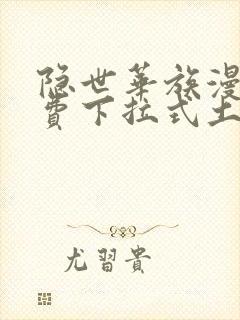 隐世华族漫
费下拉式土
尤習貴